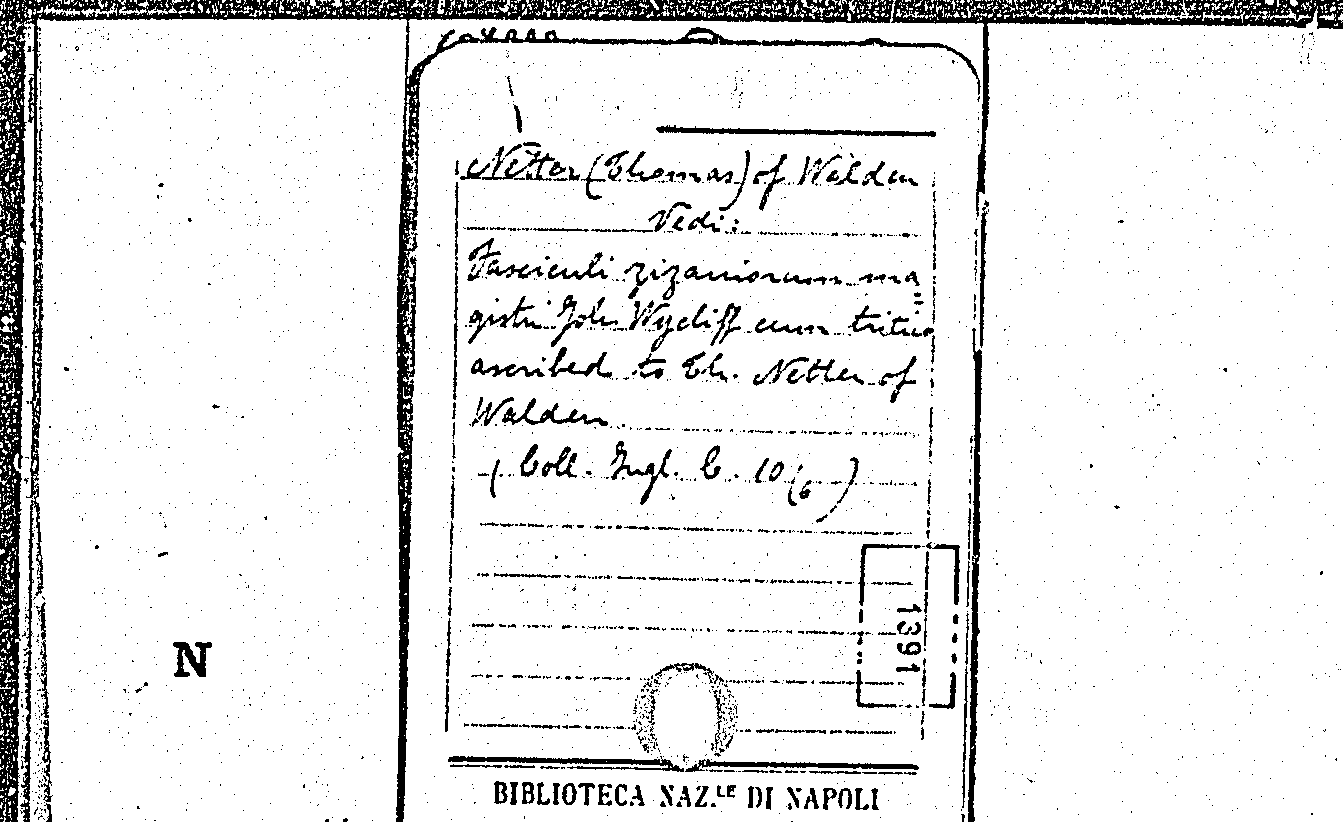 Netter (Thomas) of Walden
Vedi:
Fasciculi zizaniorum ma=
gistri Joh. Wycliff cum tritico
ascribed to Th. Netter of
Walden
(Coll. Ingl. C. 10(6)
1391
N
BIBLIOTECA NAZ.LE DI NAPOLI